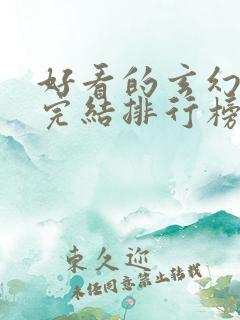 好看的玄幻
完结排行榜
东久迩
未经同意禁止转载